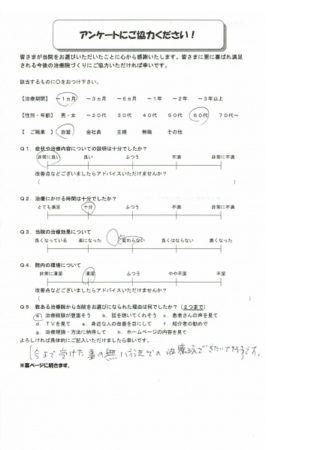 アンケートにご協力ください!
皆さまが当院をお選びいただいたことに心から感謝いたします。皆さまに更に喜ばれ満足
される今後の治療院づくりにご協力いただければ幸いです。
該当するものに○をおつけ下さい。
【治療期間】 ～1ヵ月 ～3ヵ月 ～6ヵ月 ～1年 ～2年 ～3年以上
【性別・年齢】 男・女 ～20代 30代 40代 50代 60代 70代～
【 ご職業 】 自営 会社員 主婦 無職 その他
Q1. 症状や治療内容についての説明は十分でしたか？
非常に良い 良い ふつう 不満 非常に不満
改善点などございましたらアドバイスいただけませんか？
(
Q2. 治療にかける時間は十分でしたか？
とても満足 十分 ふつう 不満 非常に不満
Q3. 当院の治療効果について
良くなっている 楽になった 変わらない 良くはならない 悪くなった
Q4. 院内の環境について
非常に満足 満足 ふつう やや不満 不満
改善点などございましたらアドバイスいただけませんか？
(
Q5. 数ある治療院から当院をお選びになられた理由は何でしたか？(2つまで)
a. 治療経験が豊富そう b. 話を聴いてくれそう c. 患者さんの声を見て
d. TVを見て e. 身近な人の改善を目にして f. 紹介者の勧めで
g. 治療理論・方法に納得して h. ホームページの内容を見て
よろしければ具体的にご記入いただけましたら幸いです。
今まで受けた事の無い方法での治療
※裏ページに続きます。